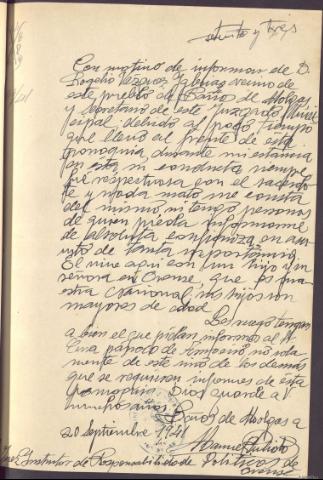 setenta y tres
Con motivo de informar de D.
Rogelio Vázquez vecino de
este pueblo de Baños de Molgas
y Secretario de este Juzgado Muni
cipal, debido al poco tiempo
que llevo al frente de esta
parroquia, durante mi estancia
en esta su conducta siempre
fué respetuosa con el sacerdo
te y nada más me consta
del mismo, ni tengo personas
de quien pueda informarme
de absoluta confianza en asu
nto de tanta importancia.
El vive aquí con un hijo y su
señora en Orense, que es maestra
nacional, sus hijos son
mayores de edad.
Les ruego tengan
a bien el que pidan informes al Sr
Cura párroco de Ambasio no sola
mente de este sino de los demás
que se requieran informes de esta
parroquia. Dios guarde a V.
muchos años. Baños de Molgas a
20 Septiembre 1941
Manuel
Juez Instructor de Responsabilidades Políticas de
Orense